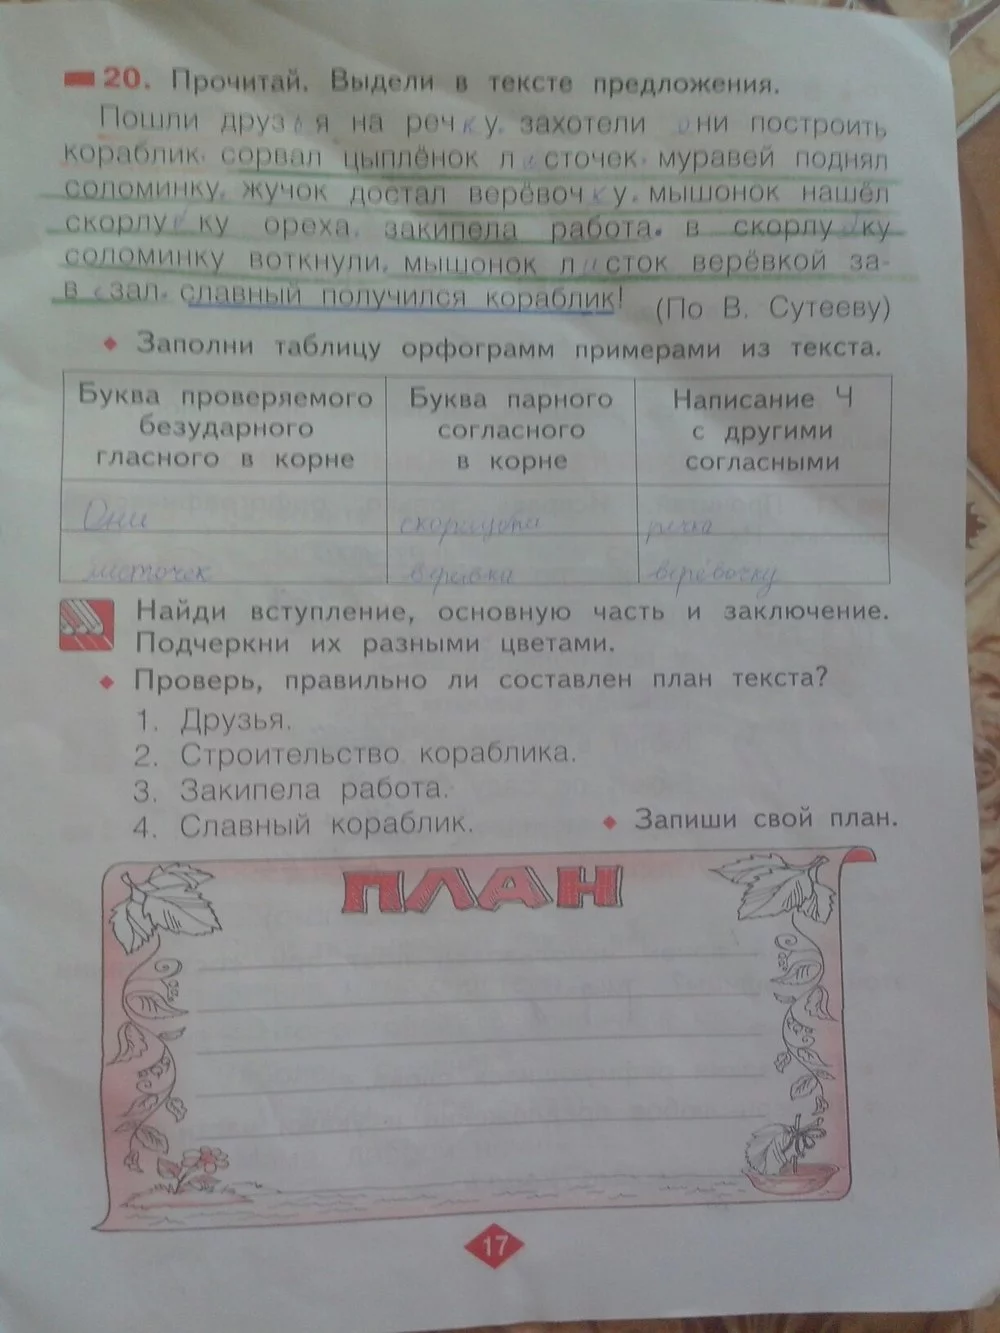 20. Прочитай. Выдели в тексте предложения.
Пошли друзья на речку. захотели они построить
кораблик. сорвал цыплёнок листочек. муравей поднял
соломинку. жучок достал верёвочку. мышонок нашёл
скорлу ку ореха. закипела работа. в скорлу ку
соломинку воткнули. мышонок листок верёвкой за-
в зал. славный получился кораблик!
(По В. Сутееву)
Заполни таблицу орфограмм примерами из текста.
Буква проверяемого безударного гласного в корне
Буква парного согласного в корне
Написание Ч с другими согласными
Они
речка
листочек
верёвка
верёвочку
Найди вступление, основную часть и заключение.
Подчеркни их разными цветами.
Проверь, правильно ли составлен план текста?
1. Друзья.
2. Строительство кораблика.
3. Закипела работа.
4. Славный кораблик.
Запиши свой план.
ПЛАН
17